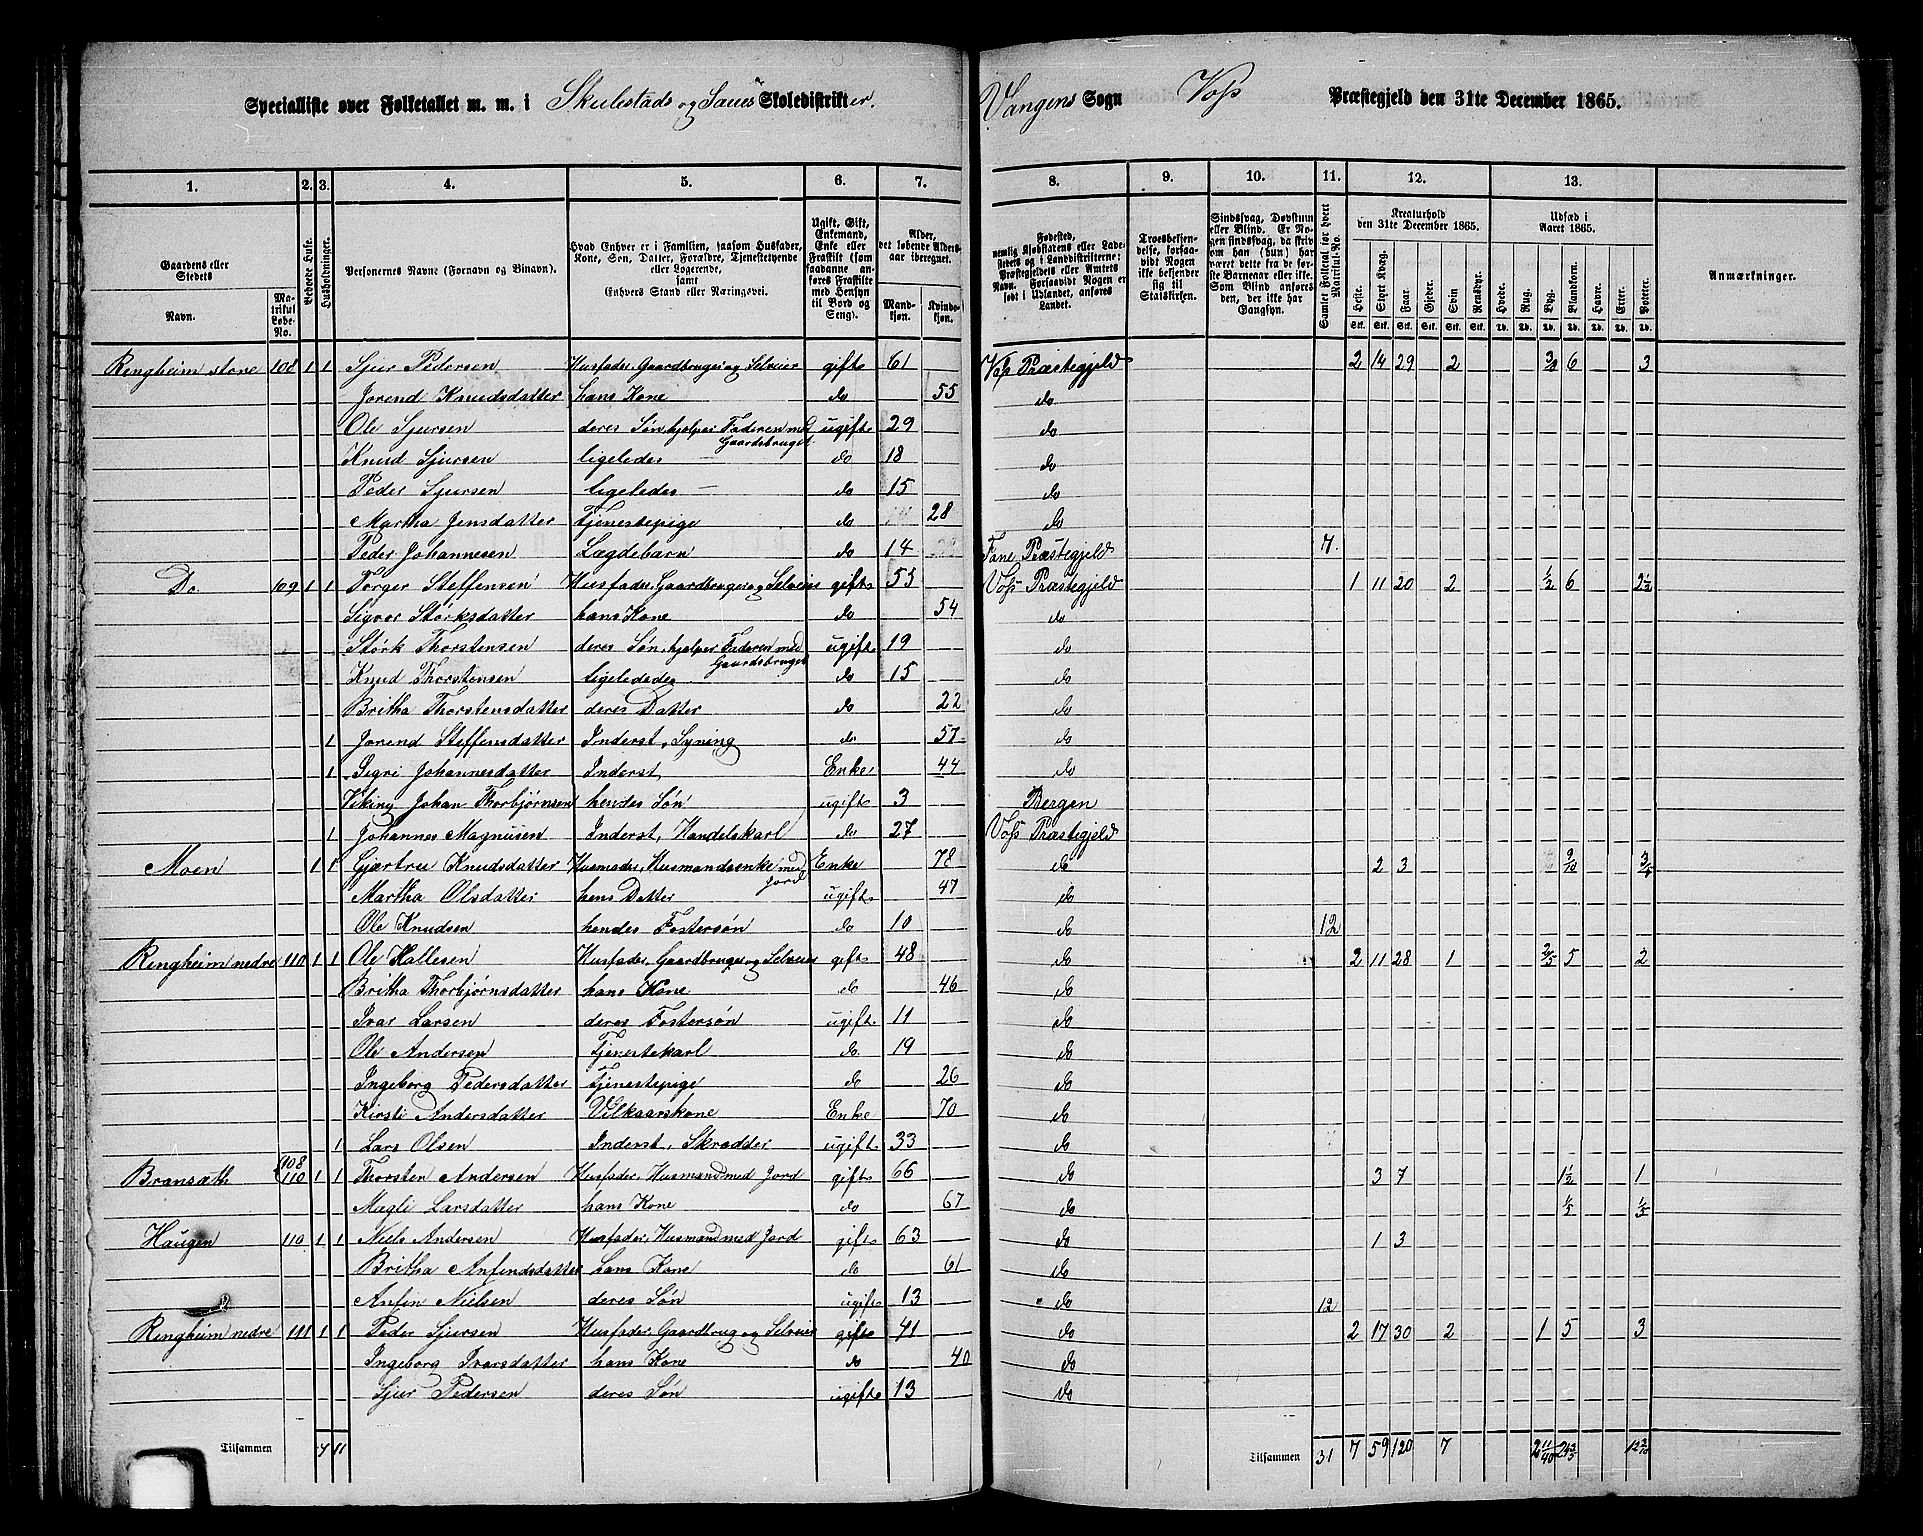 Specialliste over Folketallet m. m. i Skulestads og Saues Skoledistrikter. Vangens Sogn Voss Præstegjeld den 31te December 1865.
1. 2. 3. 4. 5. 6. 7. 8. 9. 10. 11. 12. 13.
Gaardens eller Stedets
Navn.
Matrikul Løbe-No.
Beboede Huse.
Husholdninger.
Personernes Navne (Fornavn og Binavn).
Hvad Enhver er i Familien, saasom Husfader, Kone, Søn, Datter, Forældre, Tjenestetyende eller Logerende,
samt
Enhvers Stand eller Næringsvei.
Ugift, Gift, Enkemand, Enke eller Fraskilt (som saadanne anføres Fraskilte med Hensyn til Bord og Seng).
Alder, det løbende Alders-aar iberegnet.
Mand-kjøn. Kvinde-kjøn.
Fødested, nemlig Kjøbstadens eller Ladestedets og i Landdistrikterne: Præstegjeldets eller Amtets Navn. Forsaavidt Nogen er født i Udlandet, anføres Landet.
Troesbekjendelse, forsaavidt Nogen ikke bekjender sig til Statskirken.
Sindssvag, Døvstum eller Blind. Er Nogen sindssvag, da skrives om han (hun) har været dette fra de første Barneaar eller ikke. Som Blind anføres den, der ikke har Gangsyn.
Samlet Folketal for hvert Matrikul-No.
Kreaturhold den 31te December 1865.
Heste. Stort Kvæg. Faar. Gjeder. Svin. Rensdyr.
Udsæd i Aaret 1865.
Hvede. Rug. Byg. Blandkorn. Havre. Erter. Poteter.
Anmærkninger.
Ringheim store 108 1 1 Sjur Pedersen Husfader, Gaardbruger og Selveier gift 61 Voss Præstegjeld 2 14 29 2 6 3
Jorend Knudsdatter hans Kone do 55 do
Ole Sjursen deres Søn, hjelper Faderen med Gaardsbruget ugift 29 do
Knud Sjursen ligeledes do 18 do
Peder Sjursen ligeledes do 15 do
Martha Jensdatter Tjenestepige do 28 do
Peder Johannesen Lægdebarn do 14 Fane Præstegjeld 7
Do. 109 1 1 Torger Steffensen Husfader, Gaardbruger og Selveier gift 55 Voss Præstegjeld 1 11 20 2 1/2 6 2 1/2
Sigvor Størksdatter hans Kone do 54 do
Størk Thorstensen deres Søn, hjelper Faderen med Gaardsbruget ugift 19 do
Knud Thorstensen ligeledes do 15 do
Britha Thorstensdatter deres Datter do 22 do
1 Jorend Steffensdatter Inderst, Syning do 57 do
1 Sigri Johannesdatter Inderst Enke 44 do
Viking Johan Thorbjørnsen hendes Søn ugift 3 Bergen
1 Johannes Magnusen Inderst, Handelskarl do 27 Voss Præstegjeld
Moen 1 1 Gjertru Knudsdatter Husmoder, Husmandsenke med Jord Enke 78 do 2 3 9/10
Martha Olsdatter hens Datter ugift 47 do
Ole Knudsen hendes Fostersøn do 10 do 12
Ringheim nedre 110 1 1 Ole Hallesen Husfader, Gaardbruger og Selveier gift 48 do 2 11 28 1 2/5 5 2
Britha Thorbjørnsdatter hans Kone do 46 do
Ivar Larsen deres Fostersøn ugift 11 do
Ole Andersen Tjenestekarl do 19 do
Ingeborg Pedersdatter Tjenestepige do 26 do
Kirsti Andersdatter Vilkaarskone Enke 70 do
1 Lars Olsen Inderst, Skrædder ugift 33 do
Bransæth 108 110 1 1 Thorsten Andersen Husfader, Husmand med Jord gift 66 do 3 7 1 1/2 1
Magli Larsdatter hans Kone do 67 do 1/5 1/5
Haugen 110 1 1 Niels Andersen Husfader, Husmand med Jord gift 63 do 1 3
Britha Anfindsdatter hans Kone do 61 do
Anfin Nielsen deres Søn ugift 13 do 12
Ringheim nedre 111 1 1 Peder Sjursen Husfader, Gaardbrug og Selveier gift 41 do 2 17 30 2 1 5 3
Ingeborg Ivarsdatter hans Kone do 40 do
Sjur Pedersen deres Søn ugift 13 do
Tilsammen 7 11 Tilsammen 31 7 59 120 7